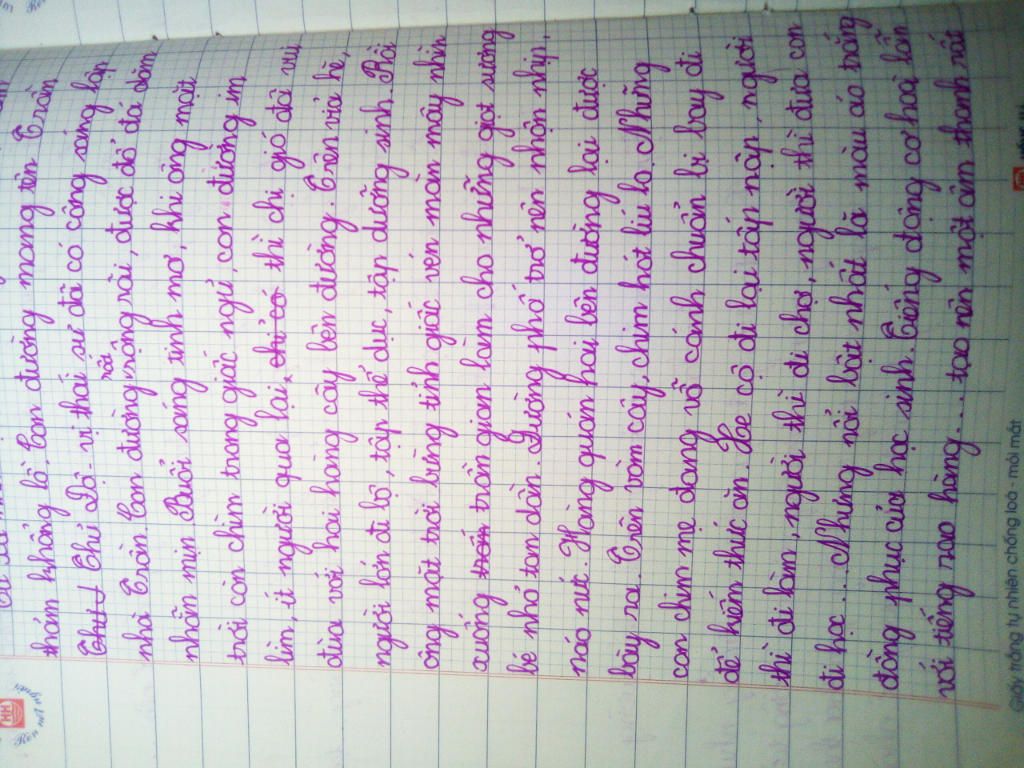 thảm khổng lồ. Con đường mang tên Trần
Thủ Độ - vị thái sư đã có công sáng lập
nhà Trần. Con đường rất rộng rãi, được đổ đá dăm
nhẵn mịn. Buổi sáng tinh mơ, khi ông mặt
trời còn chìm trong giấc ngủ, con đường im
lìm, ít người qua lại, chỉ có thì chị gió đôi vui
đùa với hai hàng cây bên đường. Trên vỉa hè,
người lớn đi bộ, tập thể dục, tập dưỡng sinh. Rồi
ông mặt trời bừng tỉnh giấc vén màn mây nhìn
xuống trần gian làm cho những giọt sương
bé nhỏ tan dần. Đường phố trở nên nhộn nhịp,
náo nét. Hàng quán hai bên đường lại được
bày ra. Trên vòm cây, chim hót líu lo. Những
con chim mẹ đang vỗ cánh chuẩn bị bay đi
để kiếm thức ăn. Xe cộ đi lại tấp nập, người
thì đi làm, người thì đi chợ, người thì đưa con
đi học... Nhưng nổi bật nhất là màu áo trắng
đồng phục của học sinh. Tiếng động cơ hoà lẫn
với tiếng rao hàng.... tạo nên một âm thanh rất
Giấy trắng tự nhiên chống loá - mỏi mắt
HH
Rèn nét người